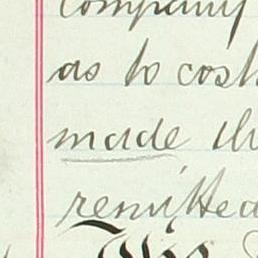 Company
as to cost
made th
remitted
The